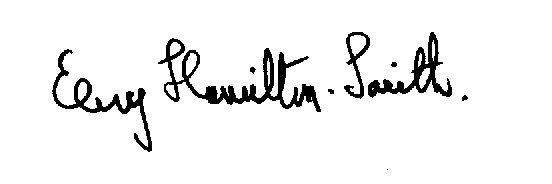 Elery Hamilton-Smith.